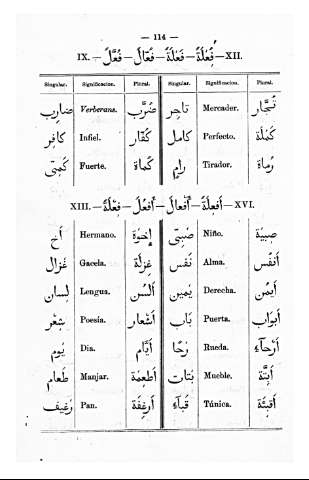 — 114 —
IX. — فُعَّلٌ — فُعَّالٌ — فَعَلَةٌ — فُعَلَةٌ — XII.
Singular. Significacion. Plural. Singular. Significacion. Plural.
ضارِب Verberans. ضُرَّب تاجِر Mercader. تُجَّار
كافِر Infiel. كُفَّار كامل Perfecto. كَمَلَة
كَمِىّ Fuerte. كُماة رامٍ Tirador. رُماة
XIII. — فِعْلَةٌ — أَفْعُلٌ — أَفْعالٌ — أَفعِلةٌ — XVI.
أخ Hermano. إخْوَة صَبِىّ Niño. صِبْيَة
غَزال Gacela. غِزلَة نَفْس Alma. أَنفُس
لِسان Lengua. أَلْسُن يَمِين Derecha. أَيمُن
شِعْر Poesía. أَشْعار بَاب Puerta. أَبْوَاب
يَوم Dia. أَيَّام رَحًا Rueda. أَرْحآء
طَعام Manjar. أَطعِمَة بَتات Mueble. أَبِتَّة
رَغِيف Pan. أَرغِفَة قَبآء Túnica. أَقبِئَة